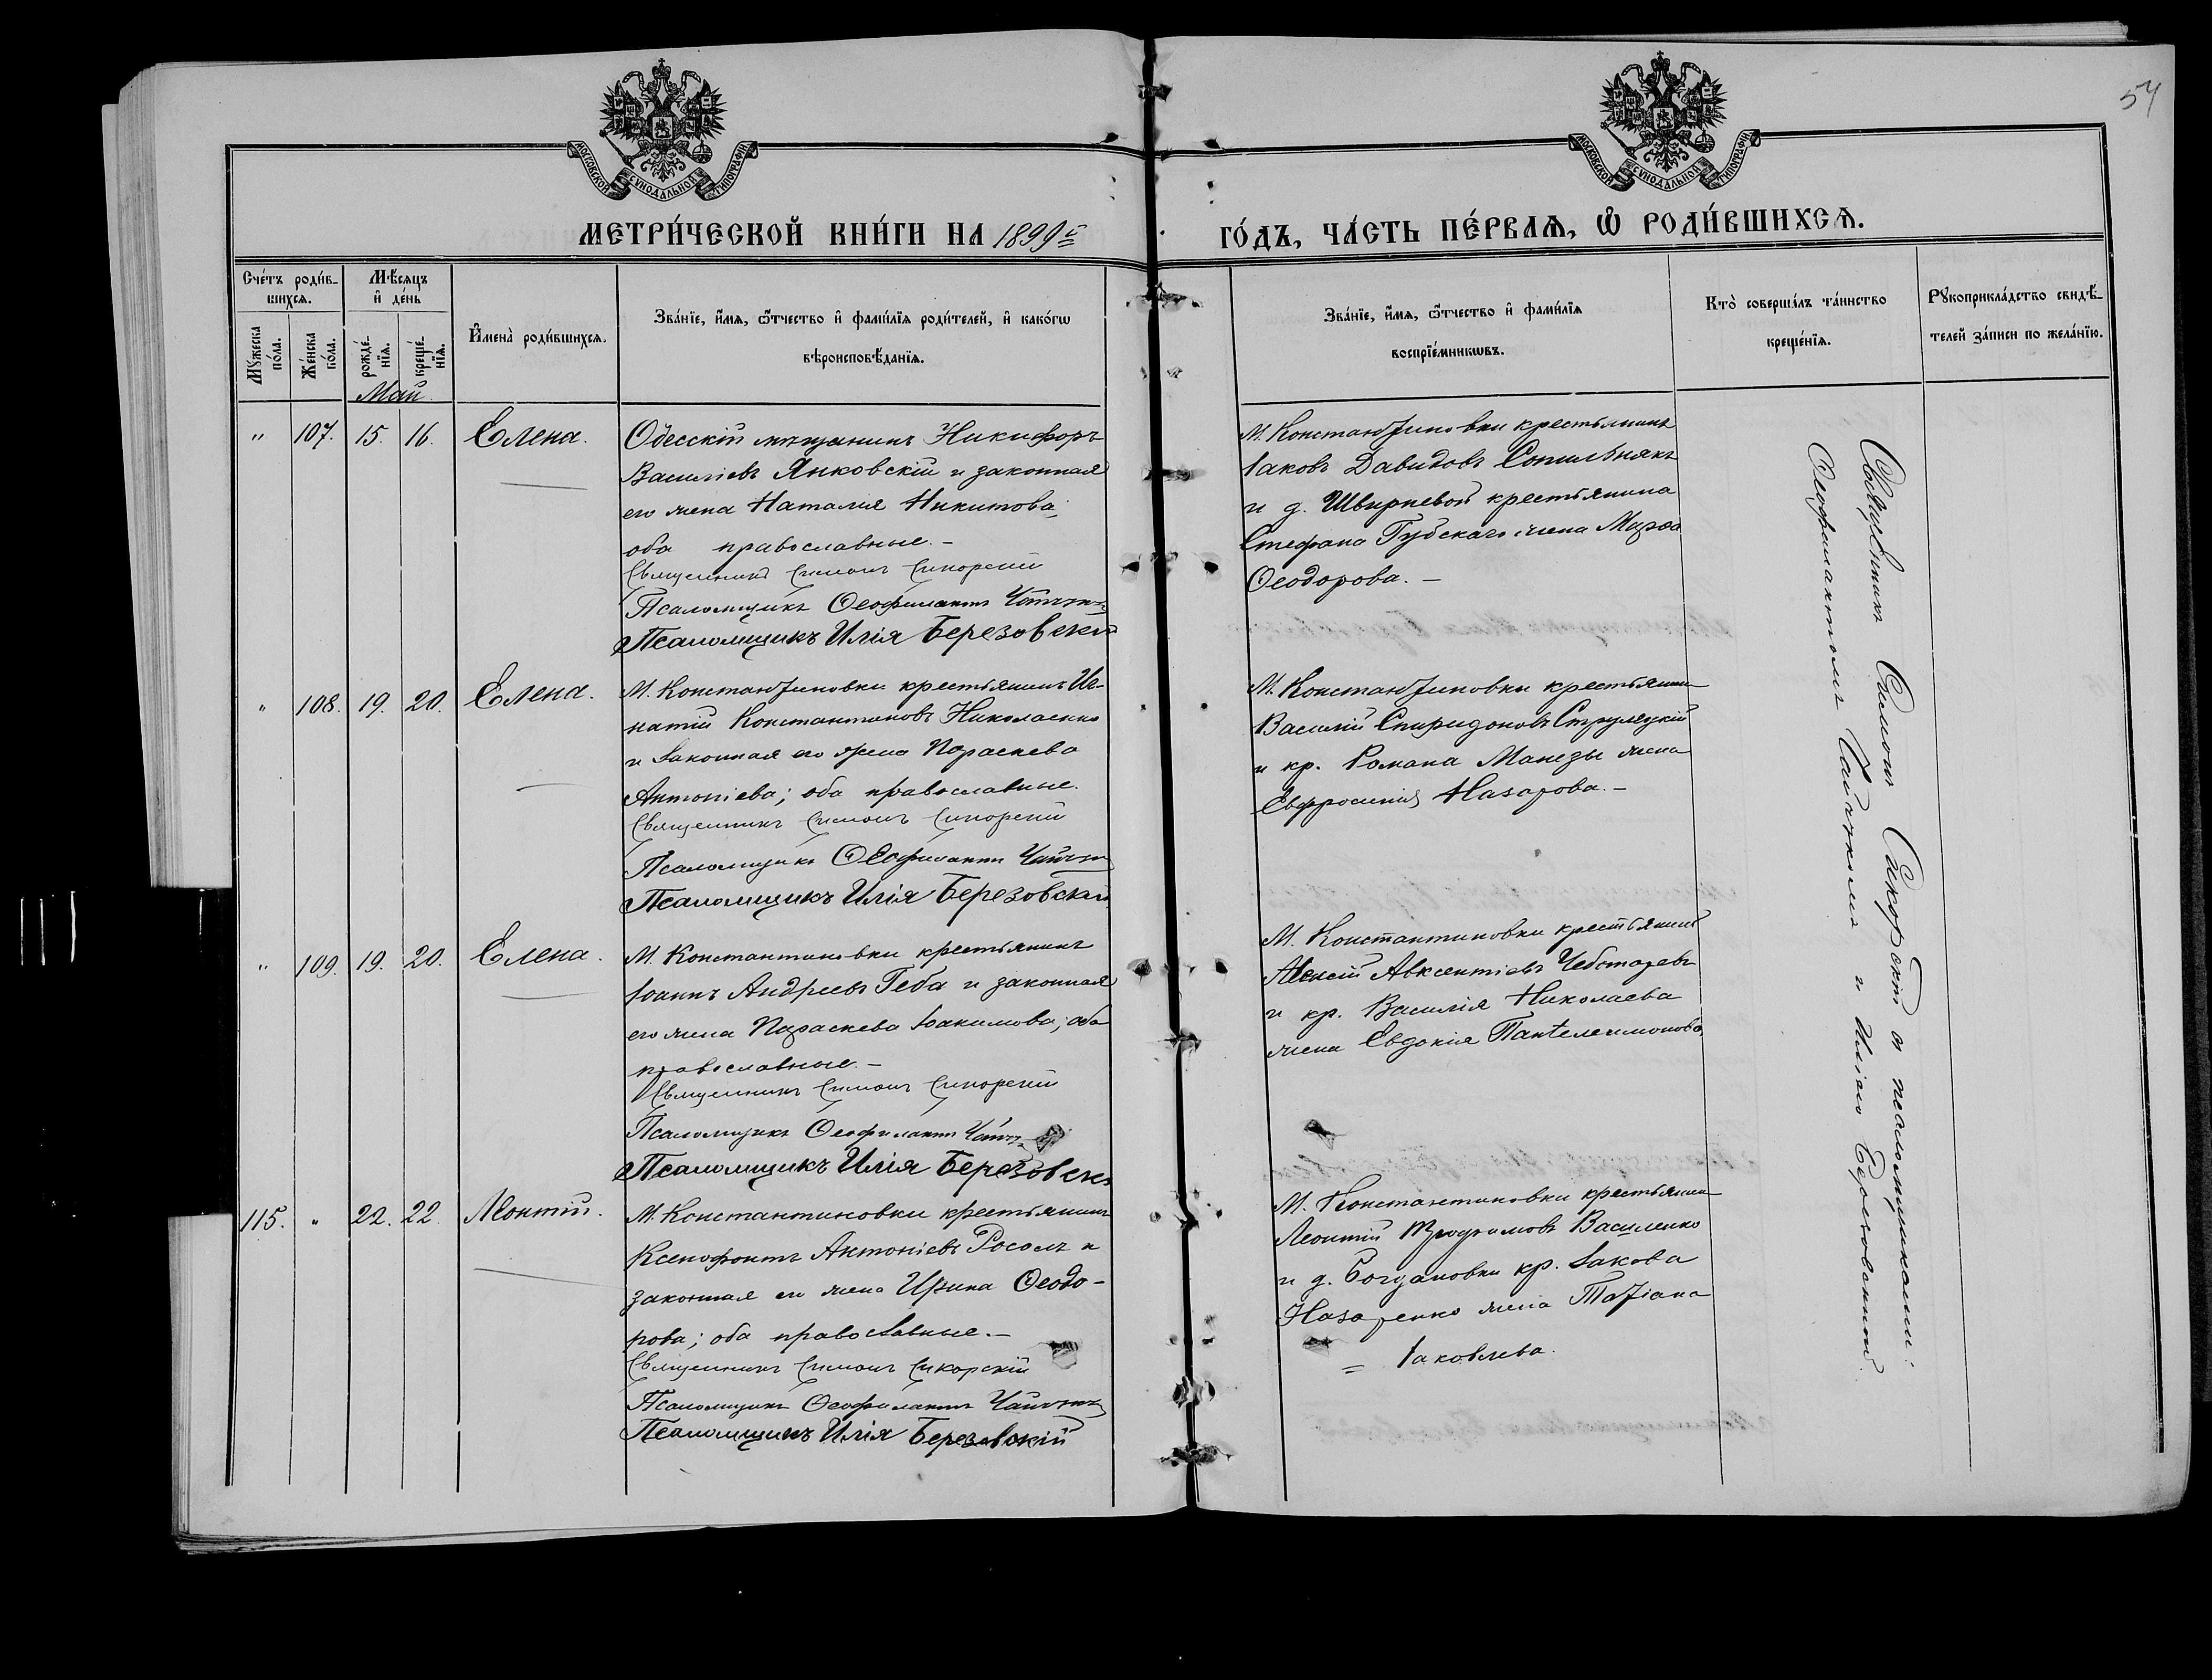 54
МОСКОВСКОЙ СУНОДАЛЬНОЙ ТИПОГРАФІИ
МОСКОВСКОЙ СУНОДАЛЬНОЙ ТИПОГРАФІИ
МЕТРИ́ЧЕСКОЙ КНИ́ГИ НА 1899й
ГО́ДЪ, ЧА́СТЬ ПЕ́РВАѦ, Ѡ҆ РОДИ́ВШИХСѦ.
Сче́тъ роди́в-
шихсѧ.
Мѣ́сяцъ
и҆ де́нь
Мꙋ́жеска по́ла.
Же́нска по́ла.
рожде́-
нїѧ.
креще́-
нїѧ.
И҆мена̀ роди́вшихсѧ.
Зва́нїе, и҆́мѧ, ѻ҆́тчество и҆ фами́лїѧ роди́телей, и҆ како́гѡ
вѣроисповѣ́данїѧ.
Зва́нїе, и҆́мѧ, ѻ҆́тчество и҆ фами́лїѧ
воспрїе́мникѡвъ.
Кто̀ соверша́лъ та́инство
креще́нїѧ.
Рꙋкоприкла́дство свидѣ́-
телей за́писи по жела́нїю.
Май
" 107. 15. 16. Елена.
Одесскій мѣщанинъ Никифоръ
Василіевъ Янковскій и законная
его жена Наталія Никитова;
оба православные.-
Священникъ Симонъ Сикорскій
Псаломщикъ Ѳеофилактъ
Псаломщикъ Илія Березовскій
М. Константиновки крестьянинъ
Іаковъ Давидовъ Сопильнякъ
и д. Швырневой крестьянина
Стефана Губскаго жена Марѳа
Ѳеодорова.-
" 108. 19. 20. Елена.
М. Константиновки крестьянинъ Иг-
натій Константиновъ Николаенко
и законная его жена Параскева
Антоніева; оба православные.
Священникъ Симонъ Сикорскій
Псаломщикъ Ѳеофилактъ
Псаломщикъ Илія Березовскій
М. Константиновки крестьянинъ
Василій Спиридоновъ
и кр. Романа жена
Евфросинія Назарова.-
" 109. 19. 20. Елена.
М. Константиновки крестьянинъ
Іоаннъ Андреевъ Геба и законная
его жена Параскева Іоакимова; оба
православные.-
Священникъ Симонъ Сикорскій
Псаломщикъ Ѳеофилактъ
Псаломщикъ Илія Березовскій
М. Константиновки крестьянинъ
Алексій Авксентіевъ Чеботаревъ
и кр. Василія Николаева
жена Евдокія Пантелеимонова
115. " 22. 22. Леонтій.
М. Константиновки крестьянинъ
Ксенофонтъ Антоніевъ Росолъ и
законная его жена Ирина Ѳеодо-
рова; оба православные.-
Священникъ Симонъ Сикорскій
Псаломщикъ Ѳеофилактъ
Псаломщикъ Илія Березовскій
М. Константиновки крестьянинъ
Леонтій Трофимовъ Василенко
и д. Богдановки кр. Іакова
Назаренко жена Татіана
= Іаковлева.
Священникъ Симонъ Сикорскій съ псаломщиками:
Ѳеофилактомъ и Иліею Березовскимъ.